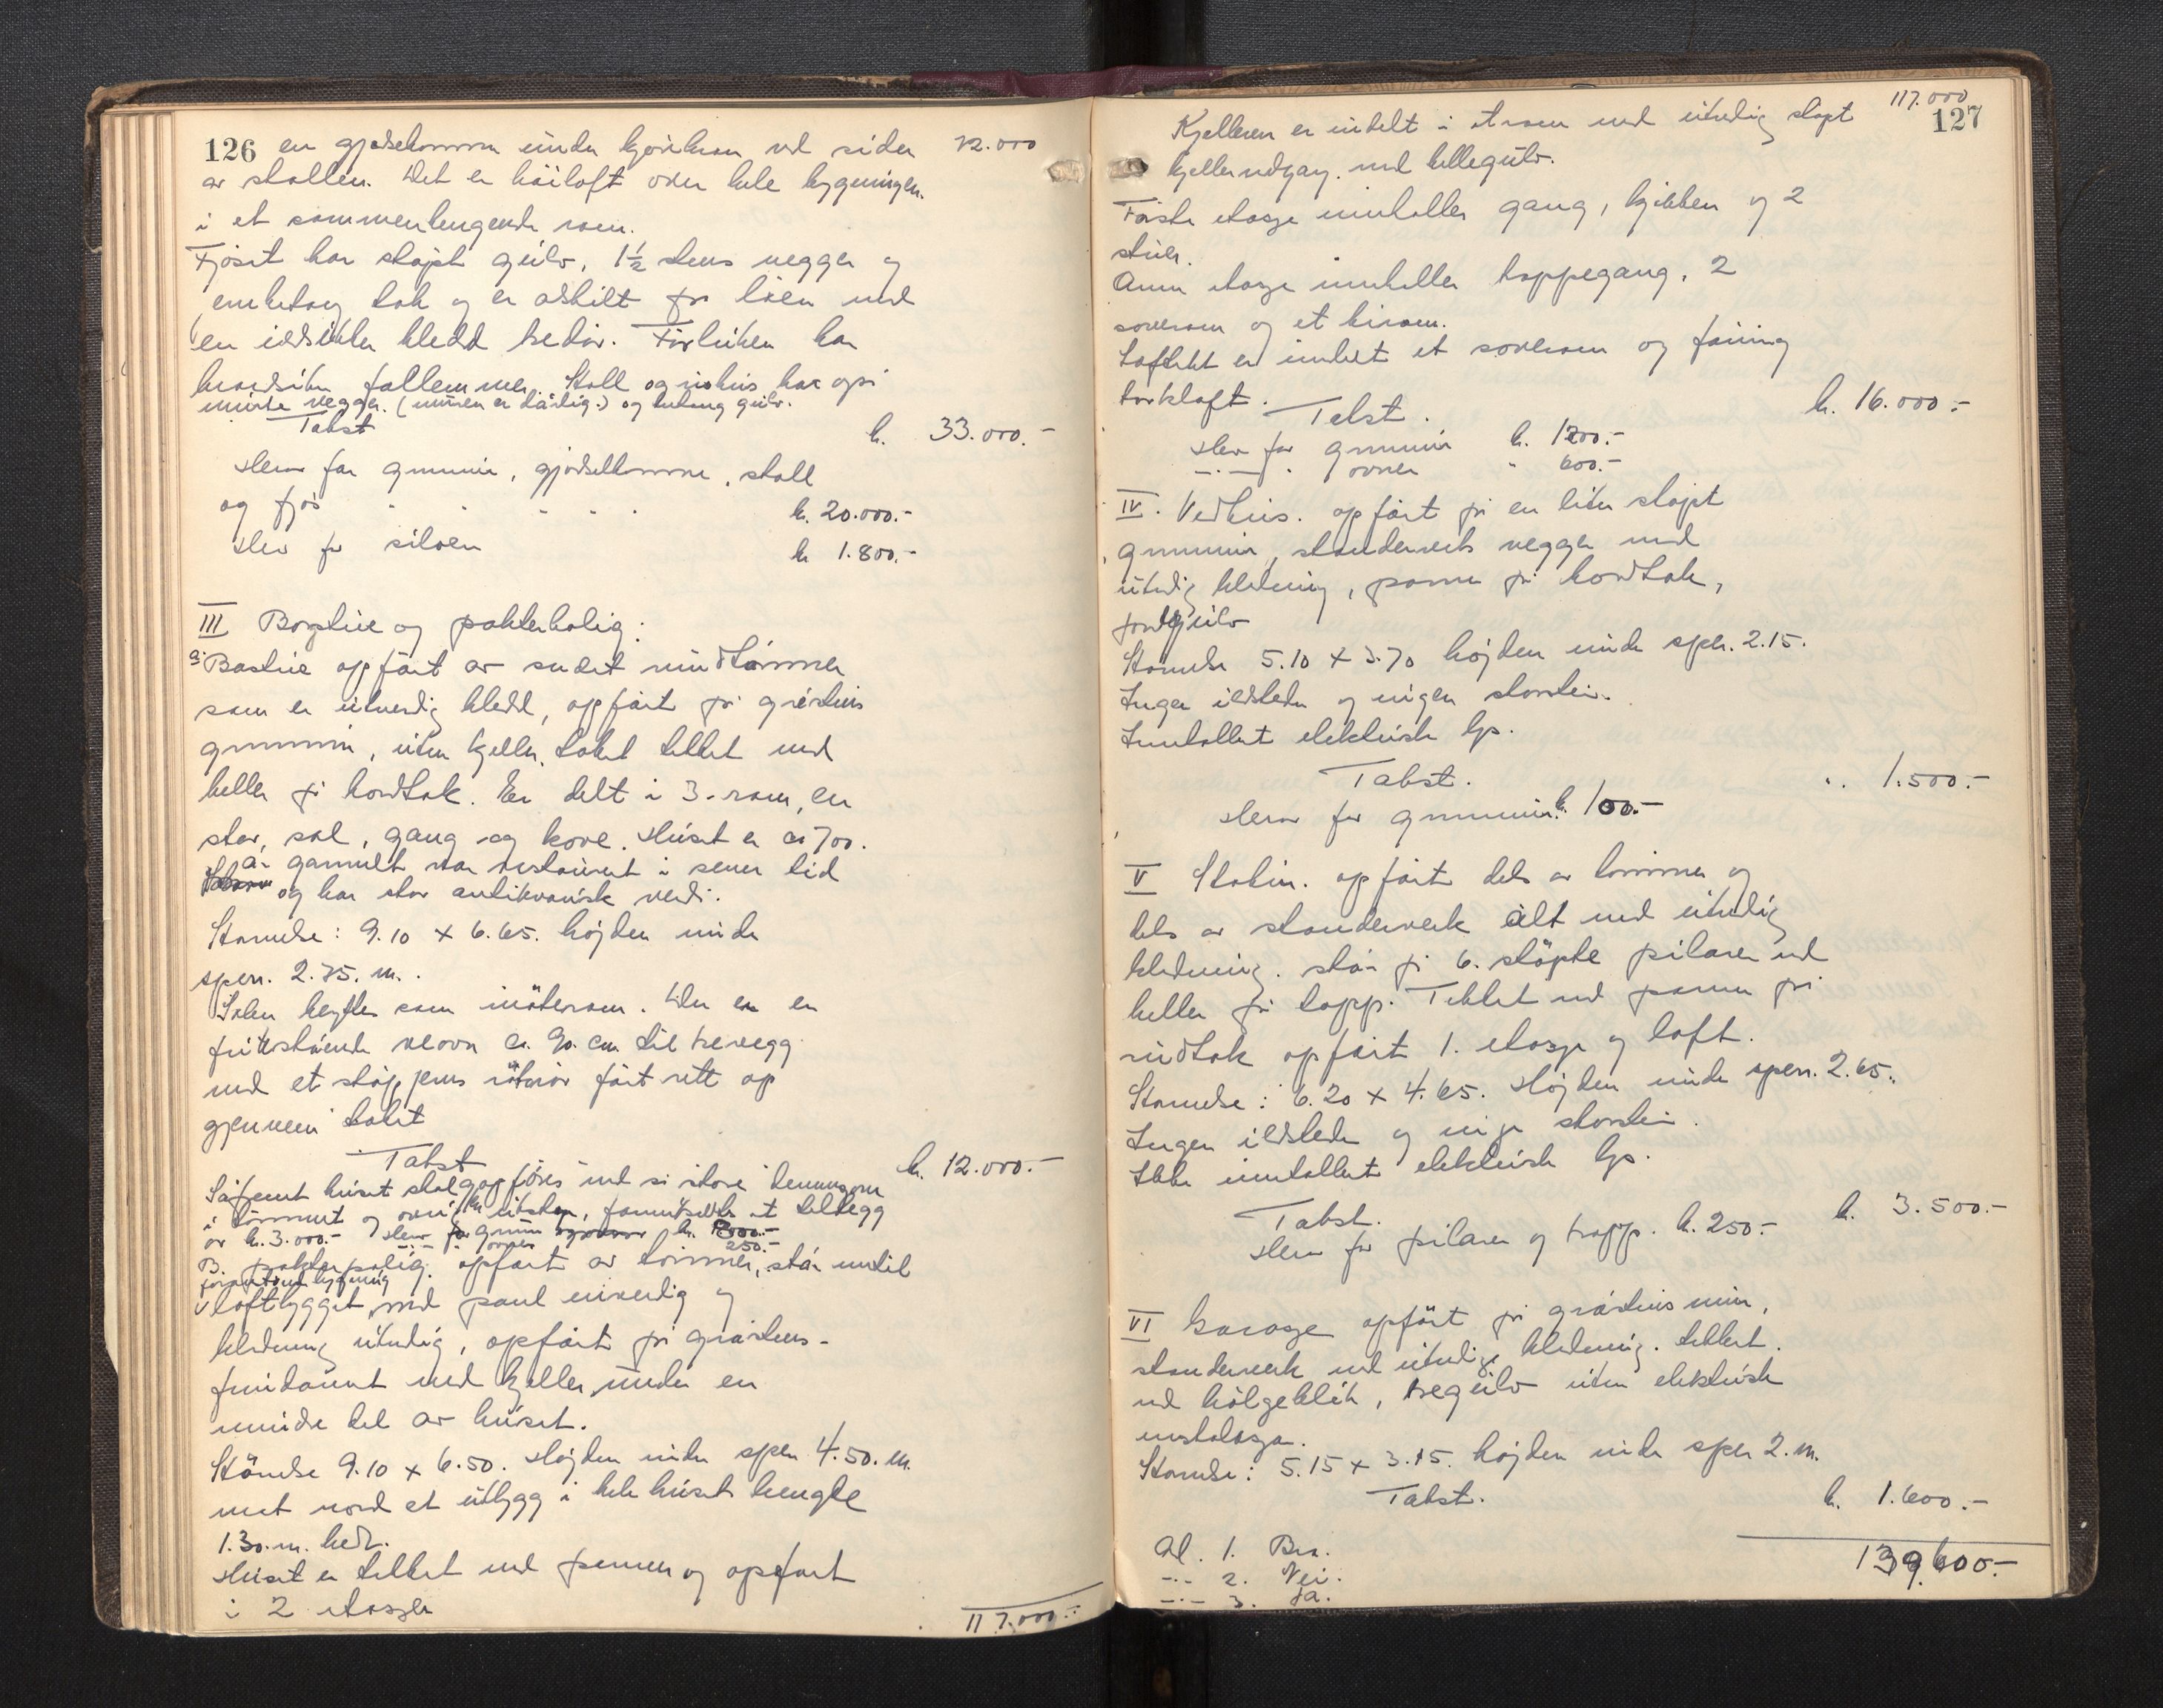 126 en gjødselkomme under kjørebroen ved siden 72.000
av stallen. Det er höiloft over hele bygningen
i et sammenhengende rom.
Fjöset har støpt gulv, 1½ stens vegger og
tak og er adskilt fra låen med
en ildsikker kledd tredör. Forluken har
brandsikre fallemmer. Stall og har også
murte vegger. (muren er dårlig.) og gulv.
Takst k. 33.000.-
Herav for grunmur, gjødselkomme, stall
og fjös k. 20.000.-
Herav for siloen k 1.800.-
III Borgstue og pakterbolig.
a. Borstue opfört av rundtömmer
som er utvendig kledd, opfört på gråstens
grunmur, uten kjeller. taket tekket med
heller på bordtak. Er delt i 3. rom, en
stor sal, gang og kove. Huset er ca 700.
år gammelt var restaurert i senere tid
og har stor antikvarisk verdi.
Störrelse: 9.10 x 6.65. höjden under
sperr. 2.75. m.
Salen benyttes som möterom. Der er en
frittstående vedovn ca. 90. cm til trevegg
med et støpjerns rökrör fört rett op
gjennem taket
Takst k. 12.000.-
Såfremt huset skal opföres med så store dimensjoner
i tömmeret og övrig utstyr, forutsettes et tillegg
av k. 3.000.- Herav for grunm k.
ovner 250.-
B. pakterbolig. opfört av tömmer, står inntil
loftbygget, med panel innvendig og
kledning utvendig, opfört på gråstens-
fundament med kjeller under en
mindre del av huset.
Störrelse 9.10 x 6.50. Höjden under sper 4.50. m
mot nord et utbygg i hele husets lengde
1.30. m. bredt.
Huset er tekket med pannen og opfört
i 2 etasjer
117.000.-
117.000
127
Kjelleren er inndelt i et rom med utvendig støpt
kjellernedgang. med hellegulv.
Förste etasje inneholler gang, kjökken og 2
stuer.
Annen etasje inneholler trappegang, 2
soverom og et birom.
Loftet er inndelt et soverom og
törkloft.
Takst. k. 16.000.-
Herav for grunmur k. 1200.-
-.- ovner 600.-
IV. Vedhus. opfört på en liten støpt
grunmur, standerverks vegger med
utvendig kledning, panne på bordtak,
jordgulv
Störrelse 5.10 x 3.70 höjden under sper. 2.15.
Ingen ildsteder og ingen skorstein.
Innstallert elektrisk lys.
Takst. 1.500.-
Herav for grunmur k. 100.-
V Stabur. opfört dels av tömmer og
dels av standerverk alt med utvendig
kledning. står på 6. støpte pilarer med
heller på topp. Tekket med panner på
rudtak opfört 1. etasje og loft.
Störrelse: 6.20 x 4.65. Höjden under sperr. 2.65.
Ingen ildsteder og ingen skorstein.
Ikke innstallert elektrisk lys.
Takst. k. 3.500.-
Herav for pilarer og trapp. k. 250.-
VI Garasje opfört på gråstens mur,
standerverk med utvendig kledning. tekket
med bölgeblik, tregulv uten elektrisk
instalasjon.
Störrelse: 5.15 x 3.15. höjden under sper 2. m.
Takst. k. 1.600.-
139.600.-
Al. 1. Bra.
-.- 2. Nei.
-.- 3. Ja.